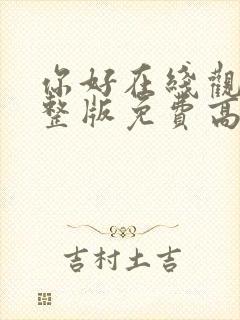 你好在綫觀
整版免費高
吉村土吉